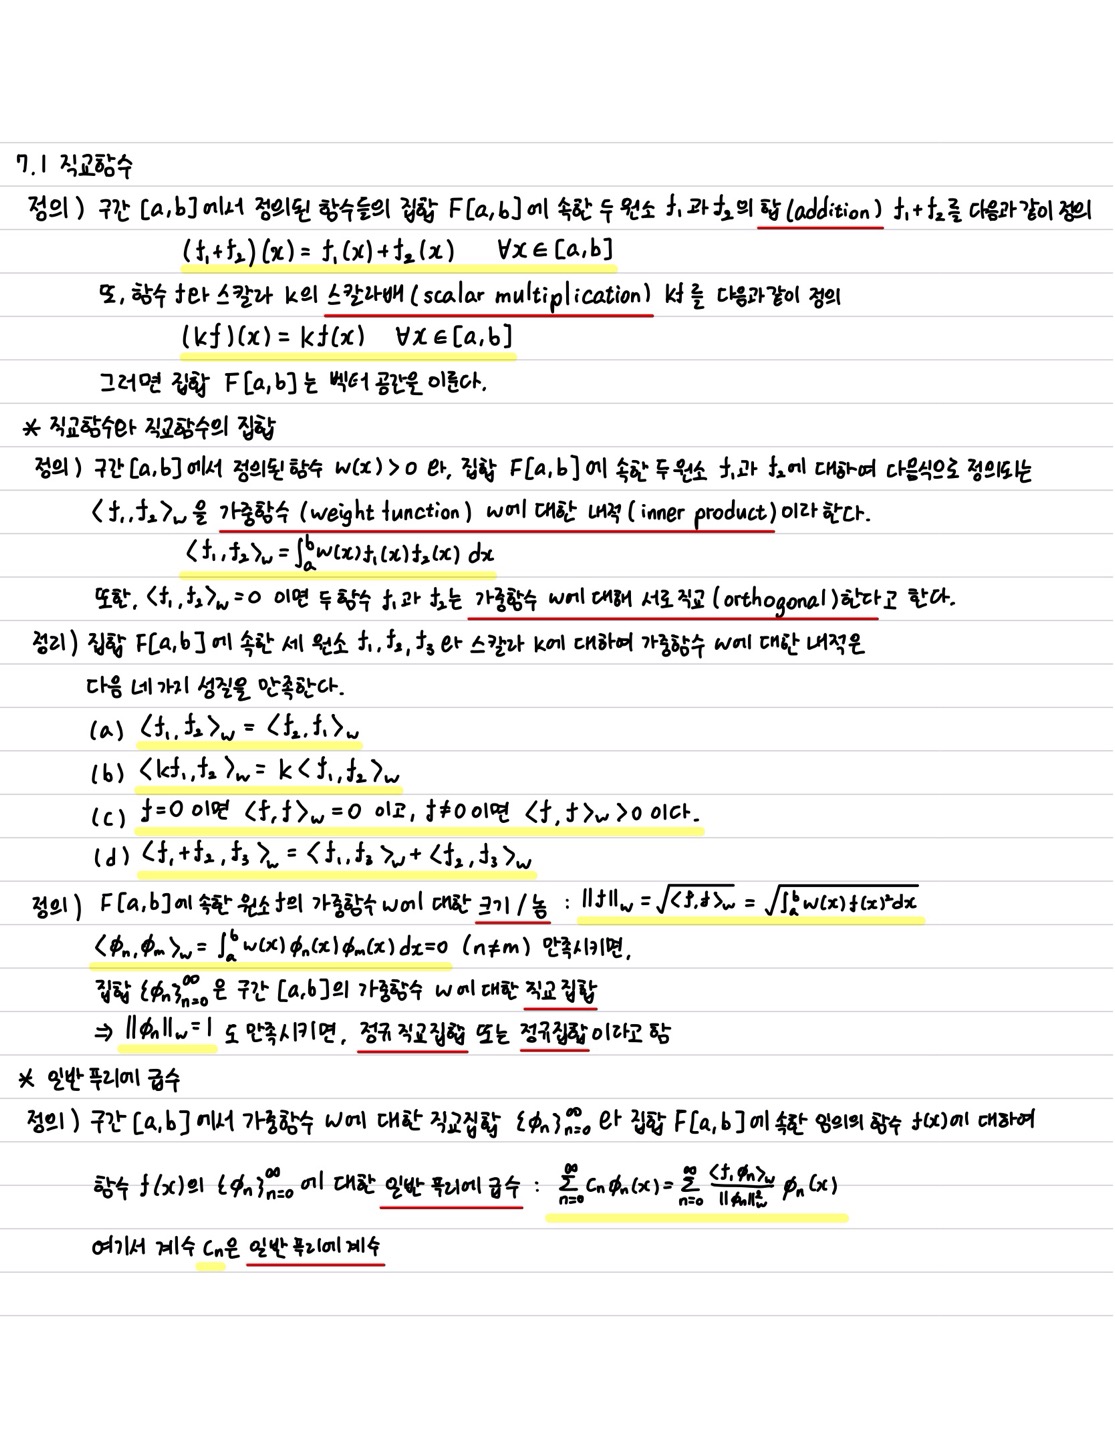 7.1 직교함수
정의) 구간 [a,b]에서 정의된 함수들의 집합 F[a,b]에 속한 두 원소 f₁과 f₂의 합(addition) f₁+f₂를 다음과 같이 정의
(f₁+f₂)(x) = f₁(x)+f₂(x) ∀x∈[a,b]
또, 함수 f와 스칼라 k의 스칼라배(scalar multiplication) kf를 다음과 같이 정의
(kf)(x) = kf(x) ∀x∈[a,b]
그러면 집합 F[a,b]는 벡터 공간을 이룬다.
* 직교함수와 직교함수의 집합
정의) 구간[a,b]에서 정의된 함수 w(x)>0 와, 집합 F[a,b]에 속한 두 원소 f₁과 f₂에 대하여 다음식으로 정의되는
<f₁,f₂>_w 을 가중함수(weight function) w에 대한 내적(inner product)이라 한다.
<f₁,f₂>_w = ∫_a^b w(x)f₁(x)f₂(x) dx
또한, <f₁,f₂>_w=0 이면 두 함수 f₁과 f₂는 가중함수 w에 대해 서로 직교(orthogonal)한다고 한다.
정리) 집합 F[a,b]에 속한 세 원소 f₁,f₂,f₃ 와 스칼라 k에 대하여 가중함수 w에 대한 내적은
다음 네 가지 성질을 만족한다.
(a) <f₁,f₂>_w = <f₂,f₁>_w
(b) <kf₁,f₂>_w = k<f₁,f₂>_w
(c) f=0 이면 <f,f>_w=0 이고, f≠0 이면 <f,f>_w>0 이다.
(d) <f₁+f₂,f₃>_w = <f₁,f₃>_w + <f₂,f₃>_w
정의) F[a,b]에 속한 원소 f의 가중함수 w에 대한 크기/놈 : ||f||_w = √<f,f>_w = √∫_a^b w(x)f(x)²dx
<φₙ,φₘ>_w = ∫_a^b w(x)φₙ(x)φₘ(x)dx=0 (n≠m) 만족시키면,
집합 {φₙ}_{n=0}^∞ 은 구간 [a,b]의 가중함수 w에 대한 직교집합
⇒ ||φₙ||_w=1 도 만족시키면, 정규 직교집합 또는 정규집합이라고 함
* 일반 푸리에 급수
정의) 구간 [a,b]에서 가중함수 w에 대한 직교집합 {φₙ}_{n=0}^∞ 와 집합 F[a,b]에 속한 임의의 함수 f(x)에 대하여
함수 f(x)의 {φₙ}_{n=0}^∞ 에 대한 일반 푸리에 급수 : ∑_{n=0}^∞ cₙφₙ(x) = ∑_{n=0}^∞ <f,φₙ>_w/||φₙ||²_w φₙ(x)
여기서 계수 cₙ은 일반 푸리에 계수